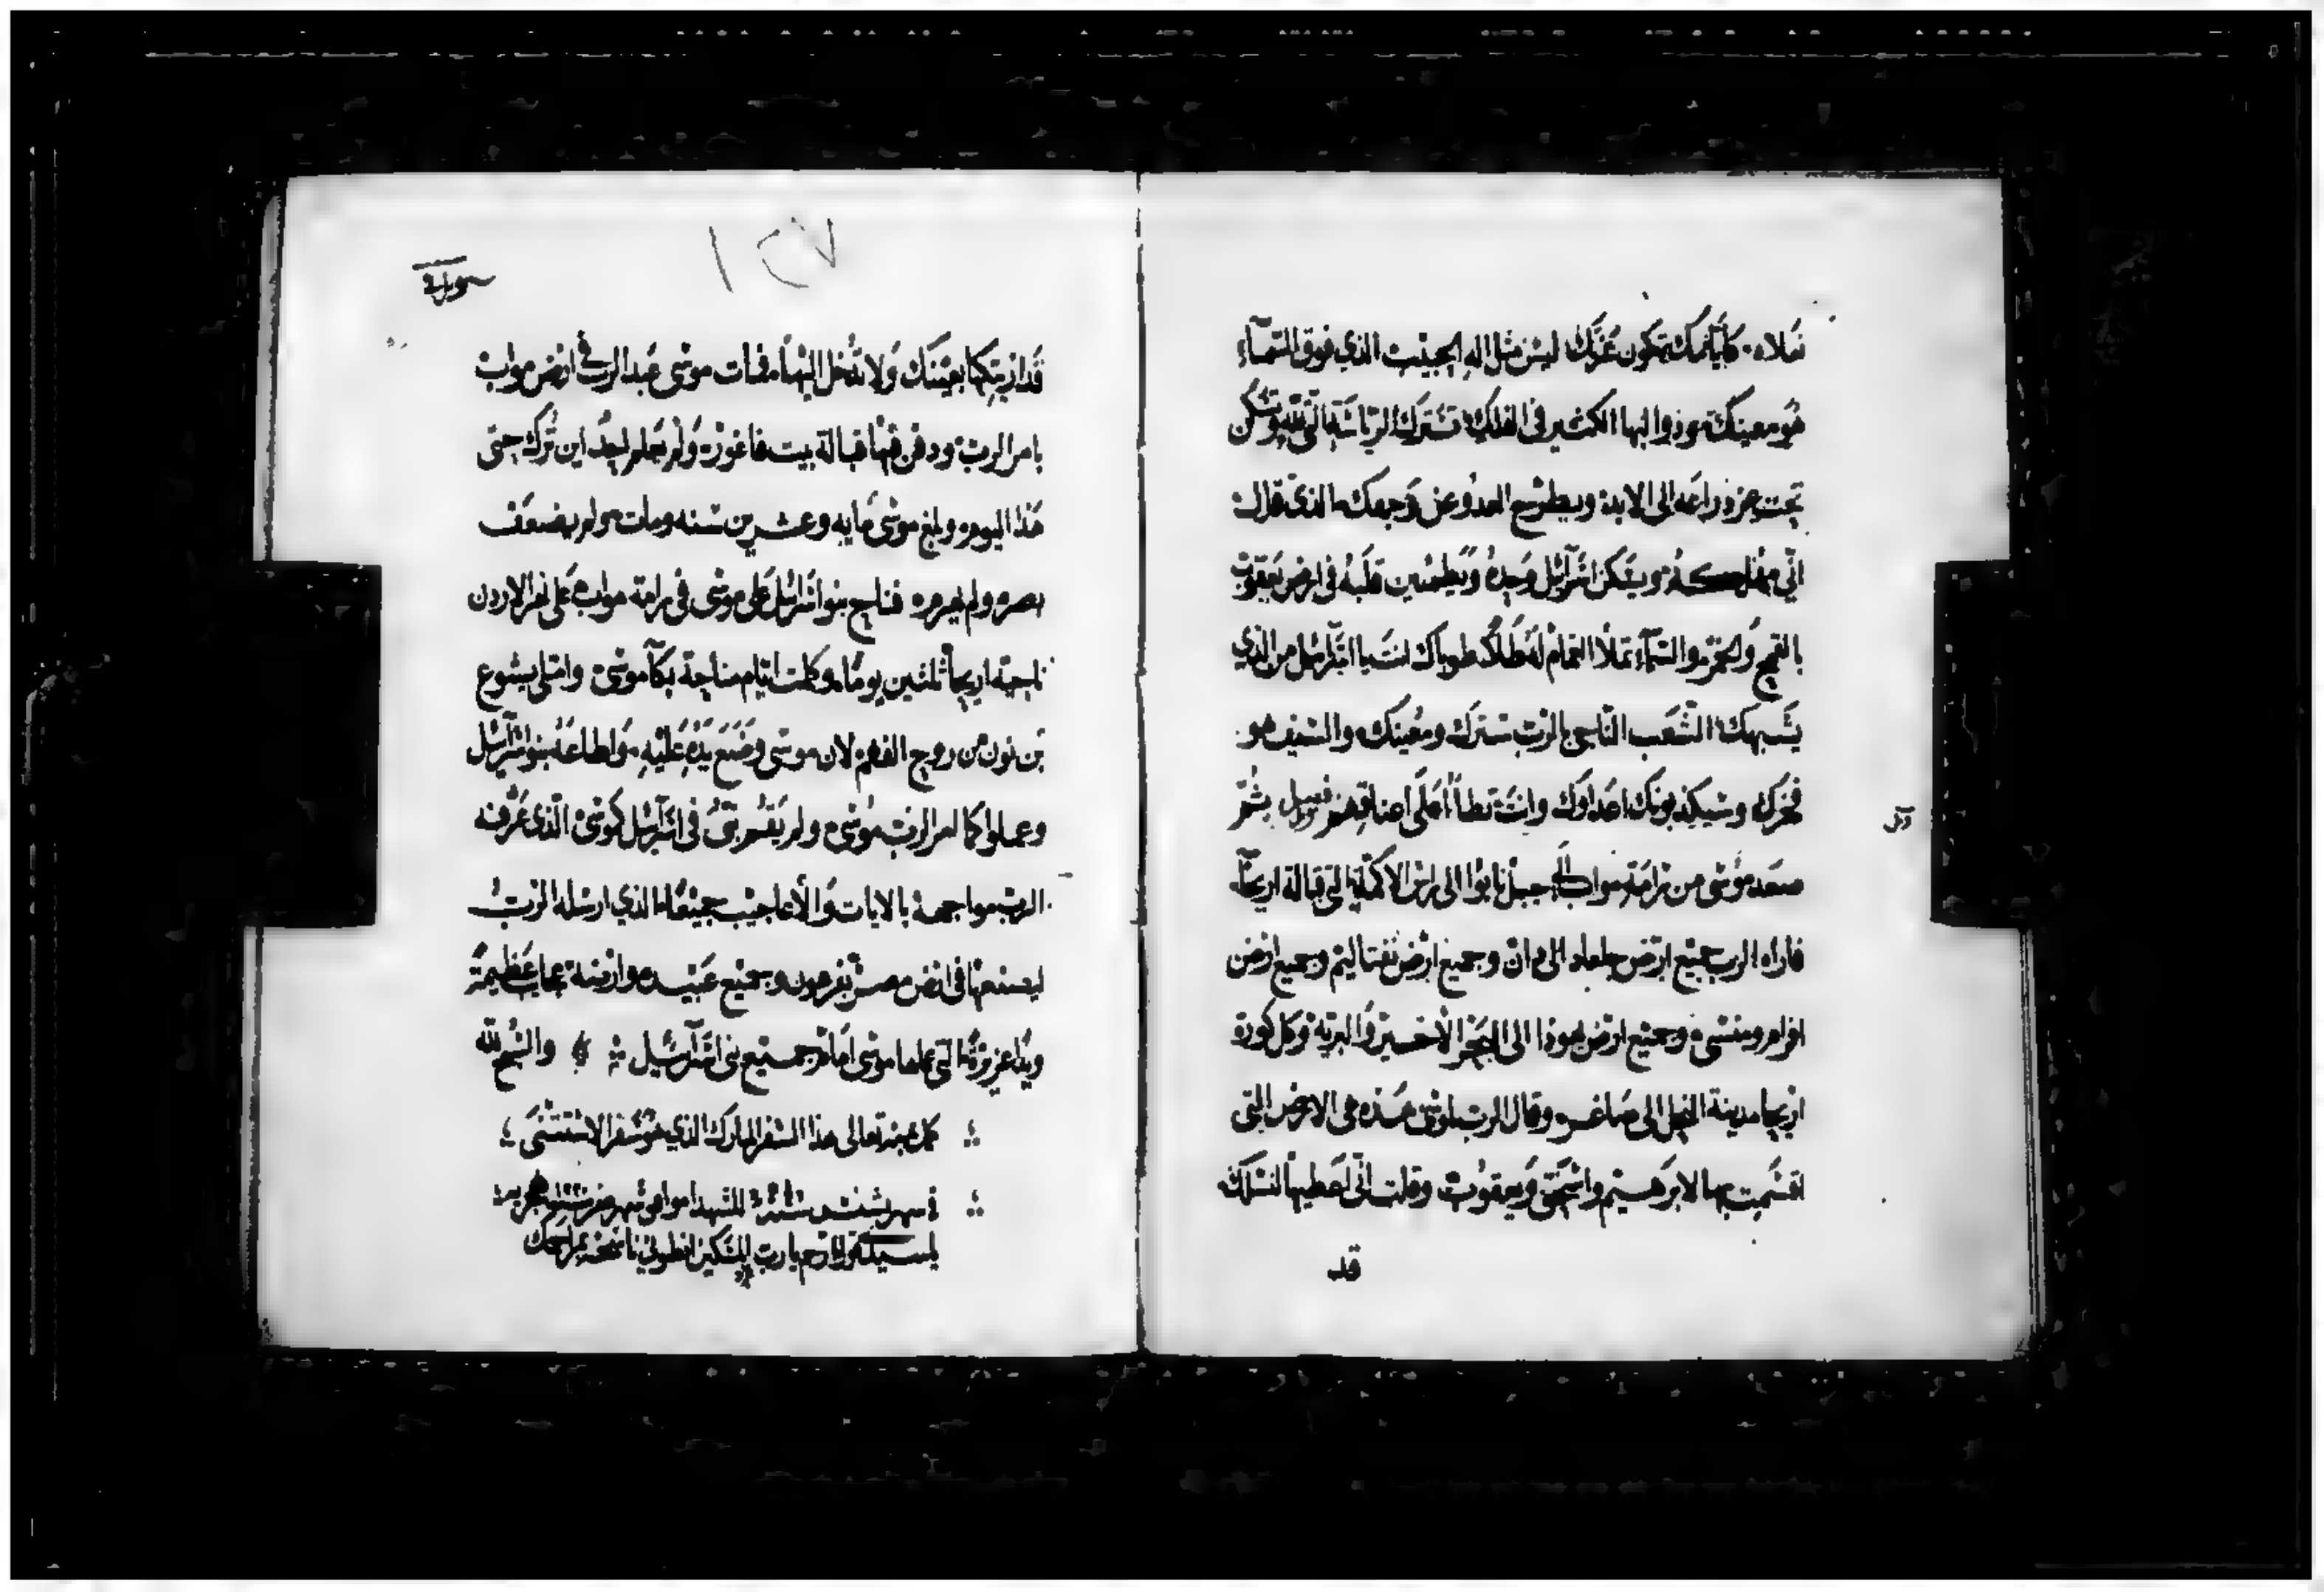 نعلاه. كايامك تكون عزتك ليس مثل اله الحبيب الذي فوق السمآء
هو معينك وذوا البها الكثير في الفلك تسترك الرياسة التي لله وتسكن
تحت عز ذراعه الى الابد ويطرح العدو عن وجهك الذي قال
اني مهلكه ويسكن اسرآئيل وحده ويطمئين قلبه في ارض يعقوب
بالقمح والخمر والسمآء تملا الغمام له طلا طوباك انت يا اسرآئيل من الذي
يشبهك الشعب الناجي بالرب سترك ومعينك والسيف هو
فخرك وسيكذبونك اعداوك وانت تطا اعلى اعناقهم فصل ثم
صعد موسى من برامة مواب الى جبل نابوا الى راس الاكمة التي قبالة اريحآ
فاراه الرب جميع ارض جلعاد الى دان وجميع ارض نفتاليم وجميع ارض
افرام ومنسى وجميع ارض يهوذا الى البحر الاخير والبرية وكل كورة
اريحا مدينة النخل الى صاغر وقال الرب لموسى هذه هي الارض التي
اقسمت بها لابرهيم واسحق ويعقوب وقلت اني اعطيها لنسلك
قد
١٥٧
قد اريتكها بعينك ولا تدخل اليها فمات موسى عبد الرب في ارض مواب
بامر الرب ودفن فيها قبالة بيت فاغور ولم يعلم احد اين ترك حتى
هذا اليوم وبلغ موسى مايه وعشرين سنه ومات ولم يضعف
بصره ولم يهرم فناح بنوا اسرائيل على موسى في برامة مواب على نهر الاردن
ناحية اريحا ثلثين يوما وكملت ايام مناحة بكآ موسى وامتلى يشوع
بن نون من روح الفهم لان موسى وضع يده عليه واطاعه بنو اسرآئيل
وعملوا كما امر الرب موسى ولم يقم نبي في اسرآئيل كموسى الذي عرفه
الرب مواجهة بالايات والاعاجيب جميعا الذي ارسله الرب
ليصنعها في ارض مصر بفرعون وجميع عبيده وارضه عجايب عظيمة
ويدا عزيزة التي عملها موسى امام جميع بني اسرآئيل والسبح لله
كمل بعون الله تعالى هذا السفر المبارك الذي هو سفر الاستثنى
في شهر بشنس سنة للشهدا موافق شهر صفر سنة هجرية
يارب المسكين ناسخه بمراحمك